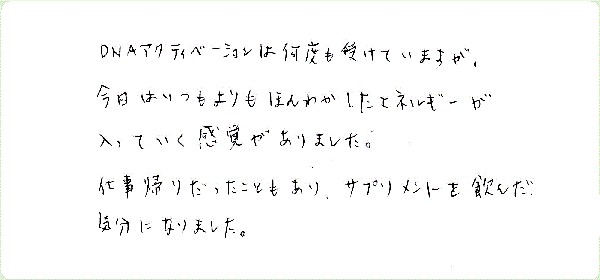 DNAアクティベーションは何度も受けていますが、
今日はいつもよりもほんわかしたエネルギーが
入っていく感覚がありました。
仕事帰りだったこともあり、サプリメントを飲んだ
気分になりました。